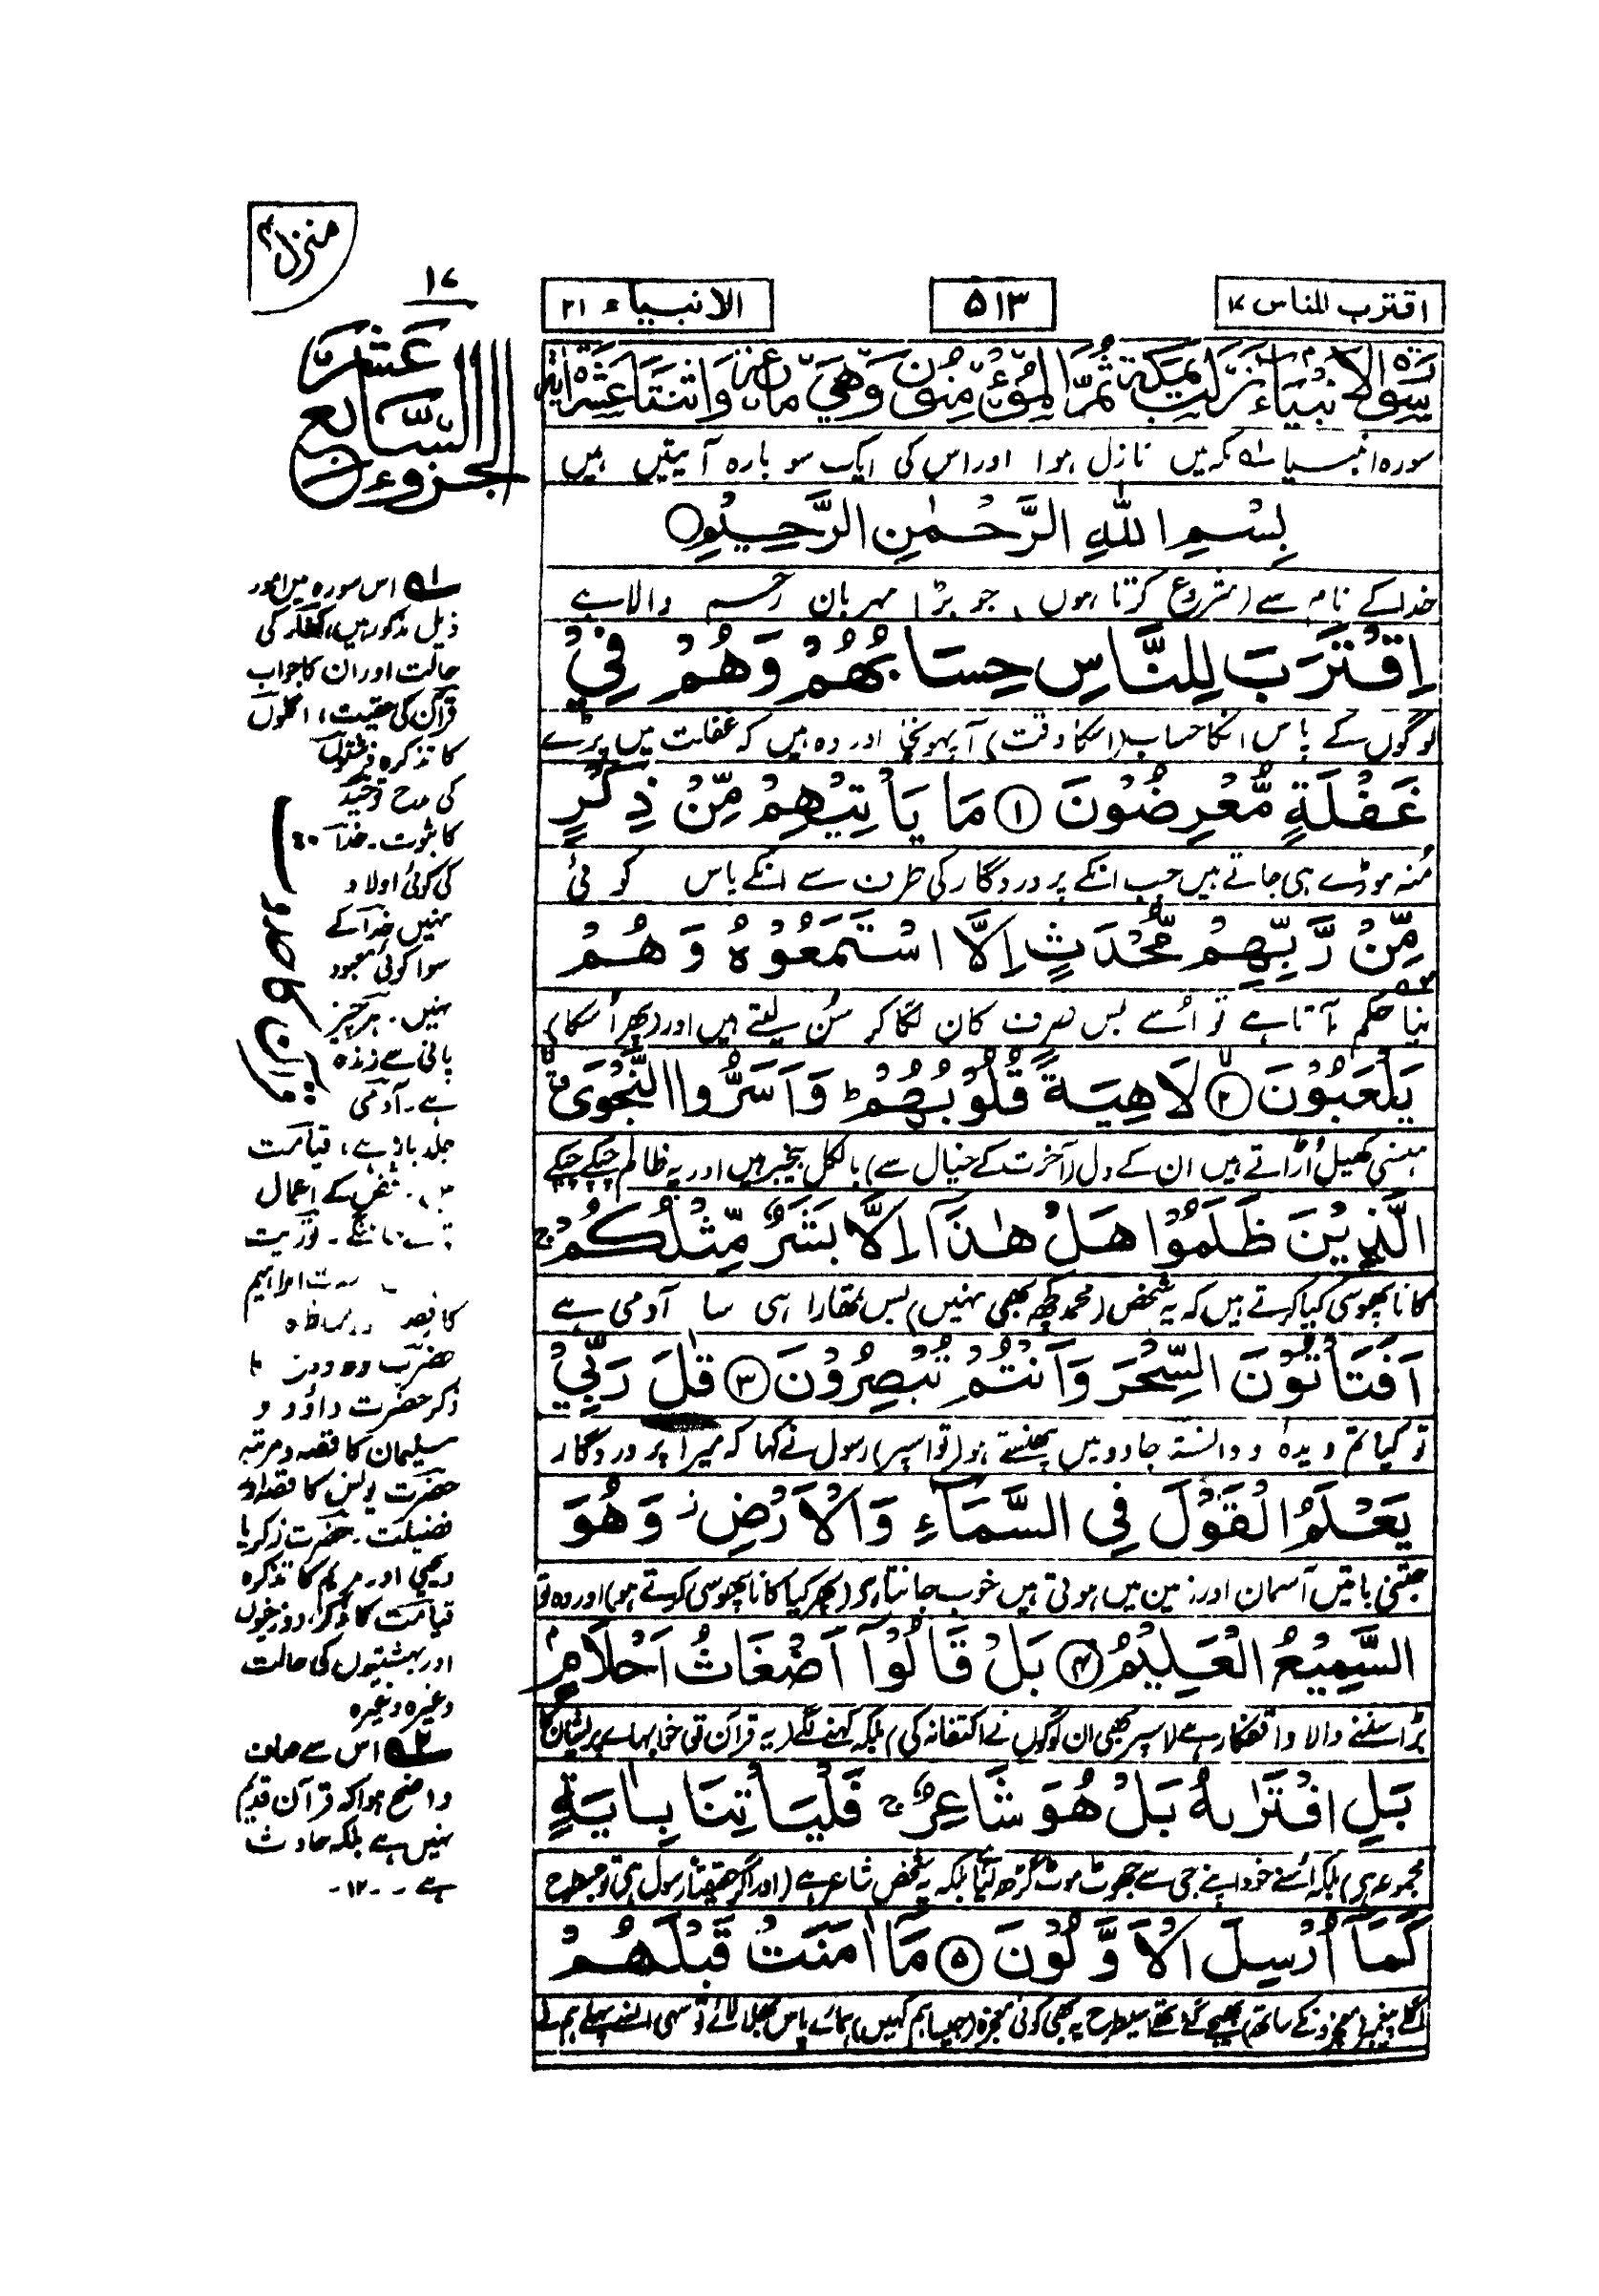 اقترب للناس ۱۷
۵۱۳
الانبیاء ۲۱
منزل ۴
۱۷
الجزوء السابع عشر
سورۃ الانبیاء نزلت بمکۃ ثم المؤمنون وھی مائۃ واثنتا عشرۃ ایۃ
سورہ انبیا مکہ میں نازل ہوا اور اس کی ایک سو بارہ آیتیں ہیں
بِسْمِ اللّٰهِ الرَّحْمٰنِ الرَّحِيْمِ
خدا کے نام سے (شروع کرتا ہوں) جو بڑا مہربان رحم والا ہے
اِقْتَرَبَ لِلنَّاسِ حِسَابُهُمْ وَهُمْ فِيْ
لوگوں کے پاس انکا حساب (اسکا وقت) آپہونچا اور وہ ہیں کہ غفلت میں پڑے
غَفْلَةٍ مُّعْرِضُوْنَ ۱ مَا يَاْتِيْهِمْ مِّنْ ذِكْرٍ
مُنہ موڑے ہی جاتے ہیں جب انکے پروردگار کی طرف سے انکے پاس کوئی
مِّنْ رَّبِّهِمْ مُّحْدَثٍ اِلَّا اسْتَمَعُوْهُ وَهُمْ
نیا حکم آتا ہے تو اُسے بس صرف کان لگا کر سُن لیتے ہیں اور (پھر اُسکا)
يَلْعَبُوْنَ ۲ لَاهِيَةً قُلُوْبُهُمْ ط وَاَسَرُّوا النَّجْوَى
ہنسی کھیل اُڑاتے ہیں ان کے دل (آخرت کے خیال سے) بالکل بیخبر ہیں اور یہ ظالم چپکے چپکے
الَّذِيْنَ ظَلَمُوْا هَلْ هٰذَآ اِلَّا بَشَرٌ مِّثْلُكُمْ ج
کانا پھوسی کیا کرتے ہیں کہ یہ شخص (محمد کچھ بھی نہیں) بس تمھارا ہی سا آدمی ہے
اَفَتَاْتُوْنَ السِّحْرَ وَاَنْتُمْ تُبْصِرُوْنَ ۳ قٰلَ رَبِّيْ
تو کیا تم دیدہ و دانستہ جادو میں پھنستے ہو (تو اسپر) رسول نے کہا کہ میرا پروردگار
يَعْلَمُ الْقَوْلَ فِى السَّمَآءِ وَالْاَرْضِ ز وَهُوَ
جتنی باتیں آسمان اور زمین میں ہوتی ہیں خوب جانتا ہی (پھر کیا کانا پھوسی کرتے ہو) اور وہ تو
السَّمِيْعُ الْعَلِيْمُ ۴ بَلْ قَالُوْٓا اَضْغَاثُ اَحْلَامٍ
بڑا سننے والا واقفکار ہے (اسپر بھی ان لوگوں نے اکتفا نہ کی) بلکہ کہنے لگے (یہ قرآن تو) خوابہاے پریشان کا
بَلِ افْتَرٰىهُ بَلْ هُوَ شَاعِرٌ ج فَلْيَاْتِنَا بِاٰيَةٍ
مجموعہ ہی) بلکہ اُسنے خود اپنے جی سے جھوٹ موٹ گڑھ لیا بلکہ یہ شخص شاعر ہے (اور اگر حقیقۃً رسول ہی) تو جسطرح
كَمَآ اُرْسِلَ الْاَوَّلُوْنَ ۵ مَآ اٰمَنَتْ قَبْلَهُمْ
اگلے پیغمبر (معجزونکے ساتھ) بھیجے گئے تھے اسیطرح یہ بھی کوئی معجزہ (جیسا ہم کہیں) ہمارے پاس بھلا لائے تو سہی انسے پہلے ہم نے
اس سورہ میں امور
ذیل مذکور ہیں، کفار کی
حالت اور ان کا جواب
قرآن کی حقیت، اگلوں
کا تذکرہ فرشتوں
کی مدح توحید
کا ثبوت۔ خدا
کی کوئی اولاد
نہیں خدا کے
سوا کوئی معبود
نہیں۔ ہر چیز
پانی سے زندہ
ہے۔ آدمی
جلد باز ہے، قیامت
کے اعمال
توریت
ابراہیم
کا قصہ
حضرت
ذکر حضرت داؤد و
سلیمان کا قصہ و مرتبہ
حضرت یونس کا قصہ اور
فضیلت۔ حضرت زکریا
یحیی اور مریم کا تذکرہ
قیامت کا ذکر، دوزخیوں
اور بہشتیوں کی حالت
وغیرہ وغیرہ
۲ اس سے صاف
واضح ہوا کہ قرآن قدیم
نہیں ہے بلکہ حادث
ہے ۔۔ ۱۲۔
قرآن کا حدوث